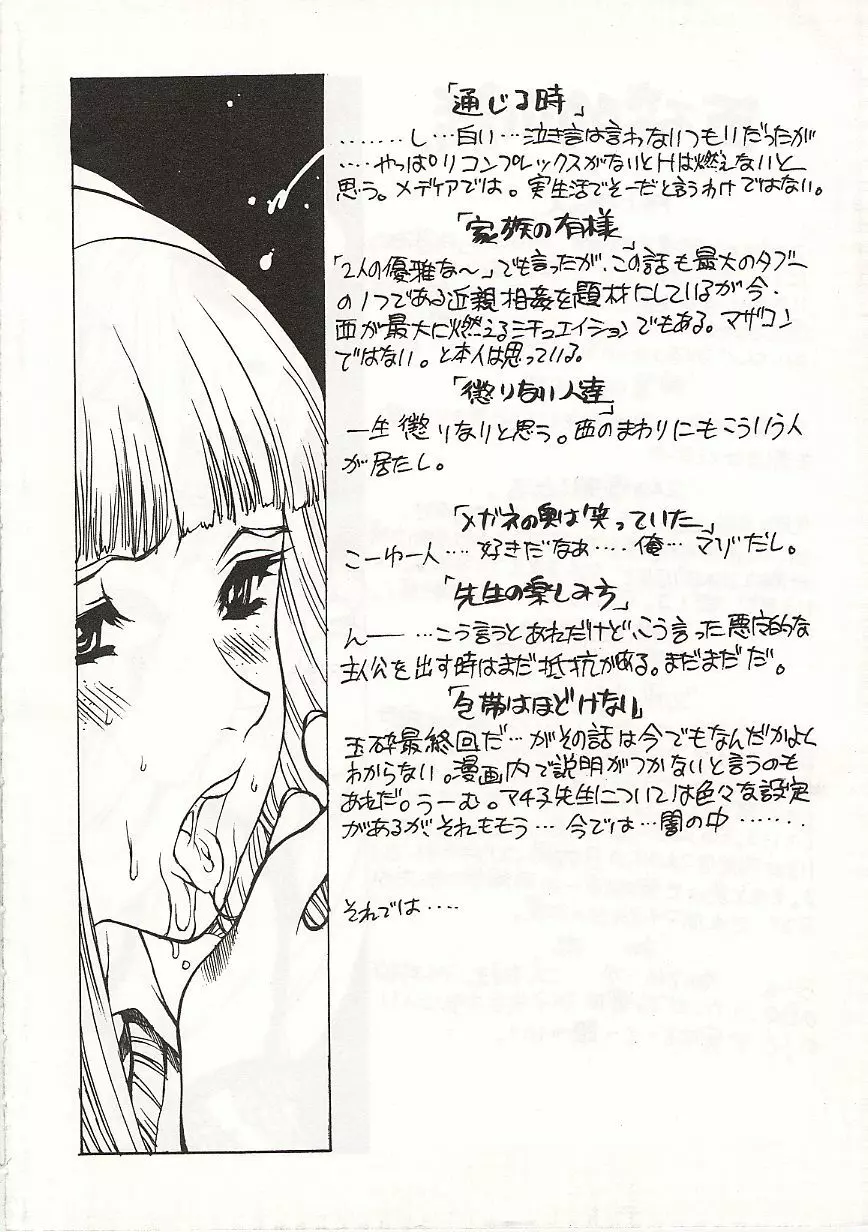 「通じる時」
・・・・・・・し・・・白い・・・泣き言は言わないつもりだったが
・・・・やっぱりコンプレックスがないとHは燃えないと
思う。メディアでは。実生活でそーだと言うわけではない。
「家族の有様」
「2人の優雅な〜」でも言ったが、この話も最大のタブー
の1つである近親相姦を題材にしているが今、
西が最大に燃えるシチュエイションでもある。マザコン
ではない。と本人は思っている。
「懲りない人達」
一生懲りないと思う。西のまわりにもこういう人
が居たし。
「メガネの奥は笑っていた」
こーゆー人・・・・好きだなぁ・・・・俺・・・マゾだし。
「先生の楽しみ方」
んー・・・こう言うとあれだけど、こう言った悪魔的な
主人公を出す時はまだ抵抗がある。まだまだだ。
「包帯はほどけない」
玉砕最終回だ・・・がその話は今でもなんだかよく
わからない。漫画内で説明がつかないと言うのも
あれだ。うーむ。マチ子先生については色々な設定
があるが、それももう・・・今では・・・闇の中・・・・・・・・
それでは・・・・